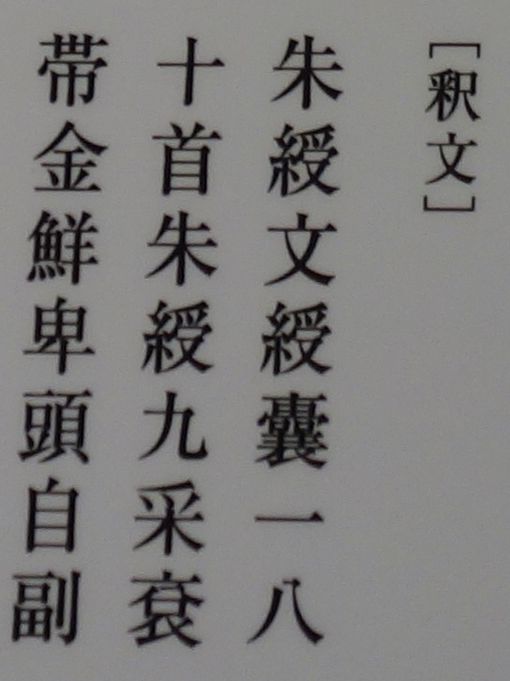 ［釈文］
朱綬文綬嚢一八
十首朱綬九采衮
帯金鮮卑頭自副